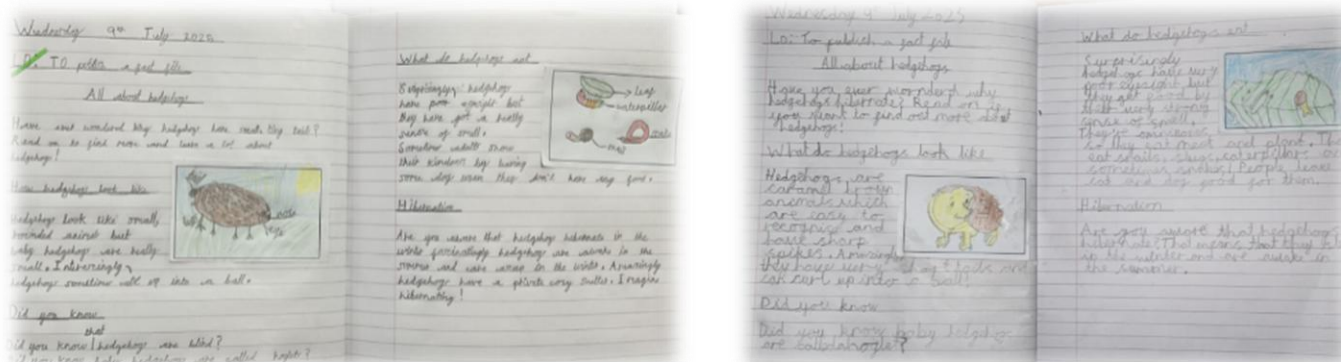 Wednesday 9th July 2025
LO: TO publish a fact file
All about hedgehogs
Have ever wondered why hedgehogs have
Read on to find more and learn a lot about
hedgehogs!
How hedgehogs look like
Hedgehogs look like small
rounded animals but
baby hedgehogs are really
small. Interestingly,
hedgehogs sometimes roll up into a ball.
Did you know
that
Did you know hedgehogs are blind?
Did you know baby hedgehogs are called hoglets?
What do hedgehogs eat
hedgehogs
have poor eyesight but
they have got a really
sense of smell.
Sometimes adults show
their kindness by having
some dog when they don't have any food.
leaf
caterpillar
Hibernation
Are you aware that hedgehogs hibernate in the
winter hedgehogs are awake in the
summer and in the winter. Amazingly
hedgehogs have a private cosy shelter. Imagine
hibernating!
Wednesday 9th July 2025
LO: To publish a fact file
All about hedgehogs
Have you ever wonderd why
hedgehogs hibernate? Read on if
you want to find out more about
hedgehogs!
What do hedgehogs look like
Hedgehogs are
caramel brown
animals which
are easy to
recognise and
have sharp
spikes. Amazingly
they have very and
can curl up into a ball!
Did you know
Did you know baby hedgehogs
are called hoglet?
What do hedgehogs eat
Surprisingly
hedgehogs have very
poor eyesight but
they get food by
their very strong
sense of smell.
They're omnivores
so they eat meat and plant. The
eat snails, slugs, caterpillars or
sometimes snakes! People leave
cat and dog food for them.
Hibernation
Are you aware that hedgehogs
hibernate? That means that they
in the winter and are awake in
the summer.